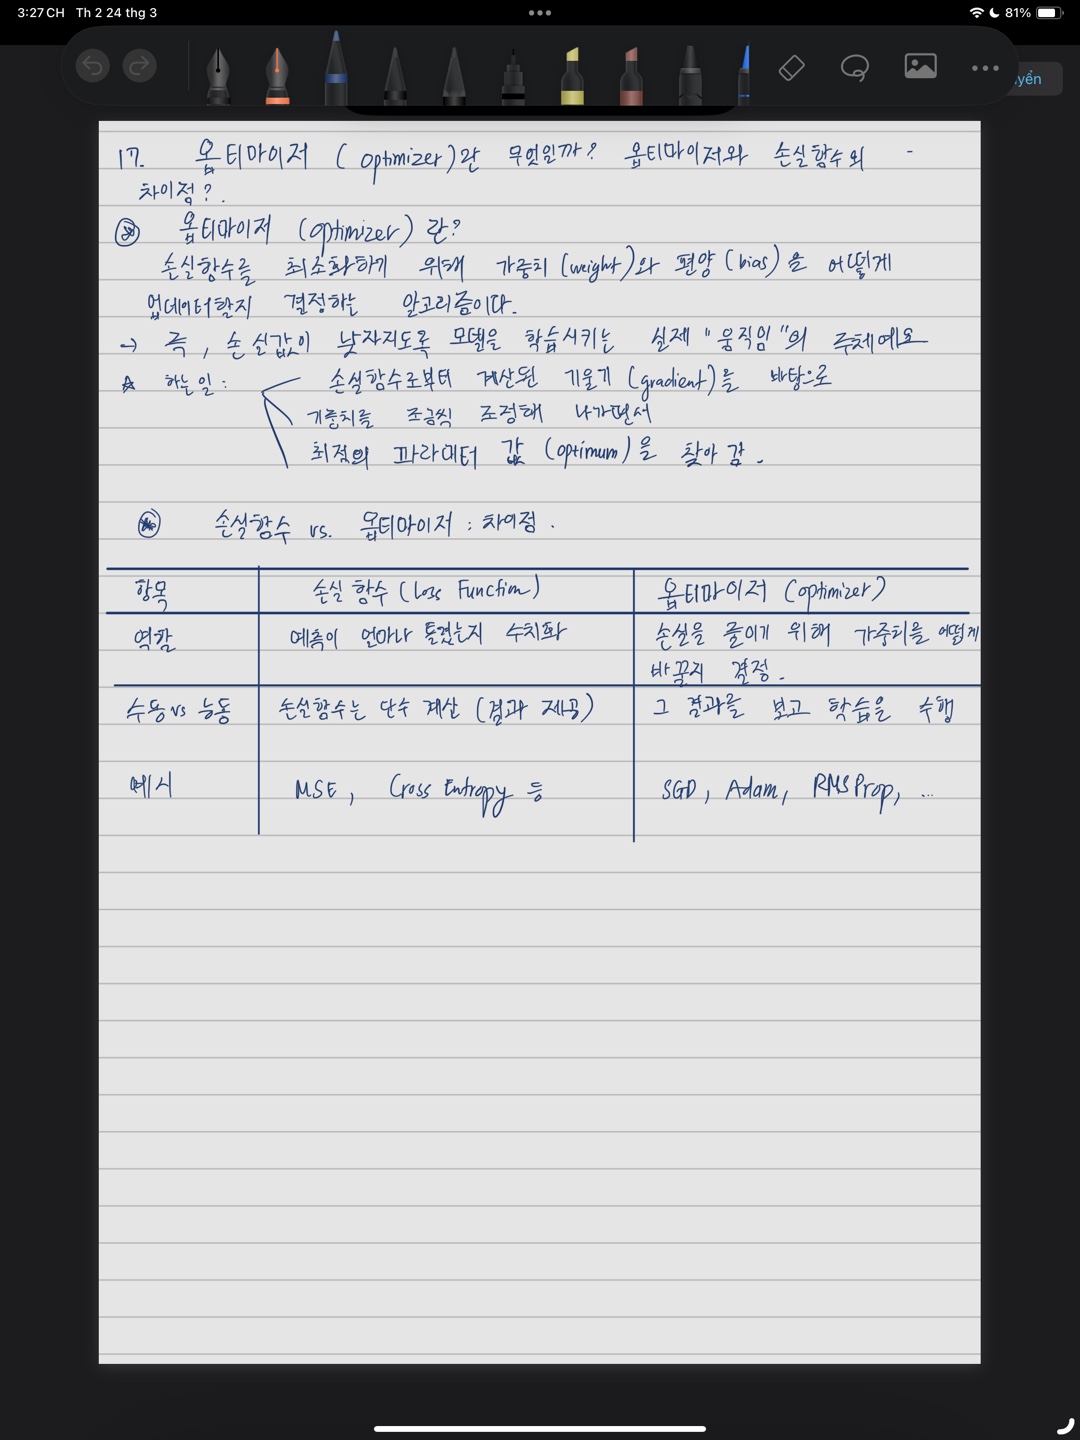 3:27 CH Th 2 24 thg 3
81%
yển
17. 옵티마이저 (optimizer)란 무엇일까? 옵티마이저와 손실함수의 -
차이점?.
옵티마이저 (optimizer) 란?
손실함수를 최소화하기 위해 가중치 (weight)와 편양 (bias)을 어떻게
업데이터할지 결정하는 알고리즘이다.
→ 즉, 손실값이 낮자지도록 모델을 학습시키는 실제 "움직임"의 주체예요
☆ 하는일 : 손실함수로부터 계산된 기울기 (gradient)을 바탕으로
기중치를 조금씩 조정해 나가면서
최적의 파라메터 값 (optimum)을 찾아 감.
손실함수 vs. 옵티마이저 : 차이점.
항목 손실 함수 (Loss Function) 옵티마이저 (optimizer)
역할 예측이 얼마나 틀렸는지 수치화 손실을 줄이기 위해 가중치를 어떻게
바꿀지 결정.
수동 vs 능동 손실함수는 단수 계산 (결과 제공) 그 결과를 보고 학습을 수행
예시 MSE, Cross Entropy 등 SGD, Adam, RMSProp, ...